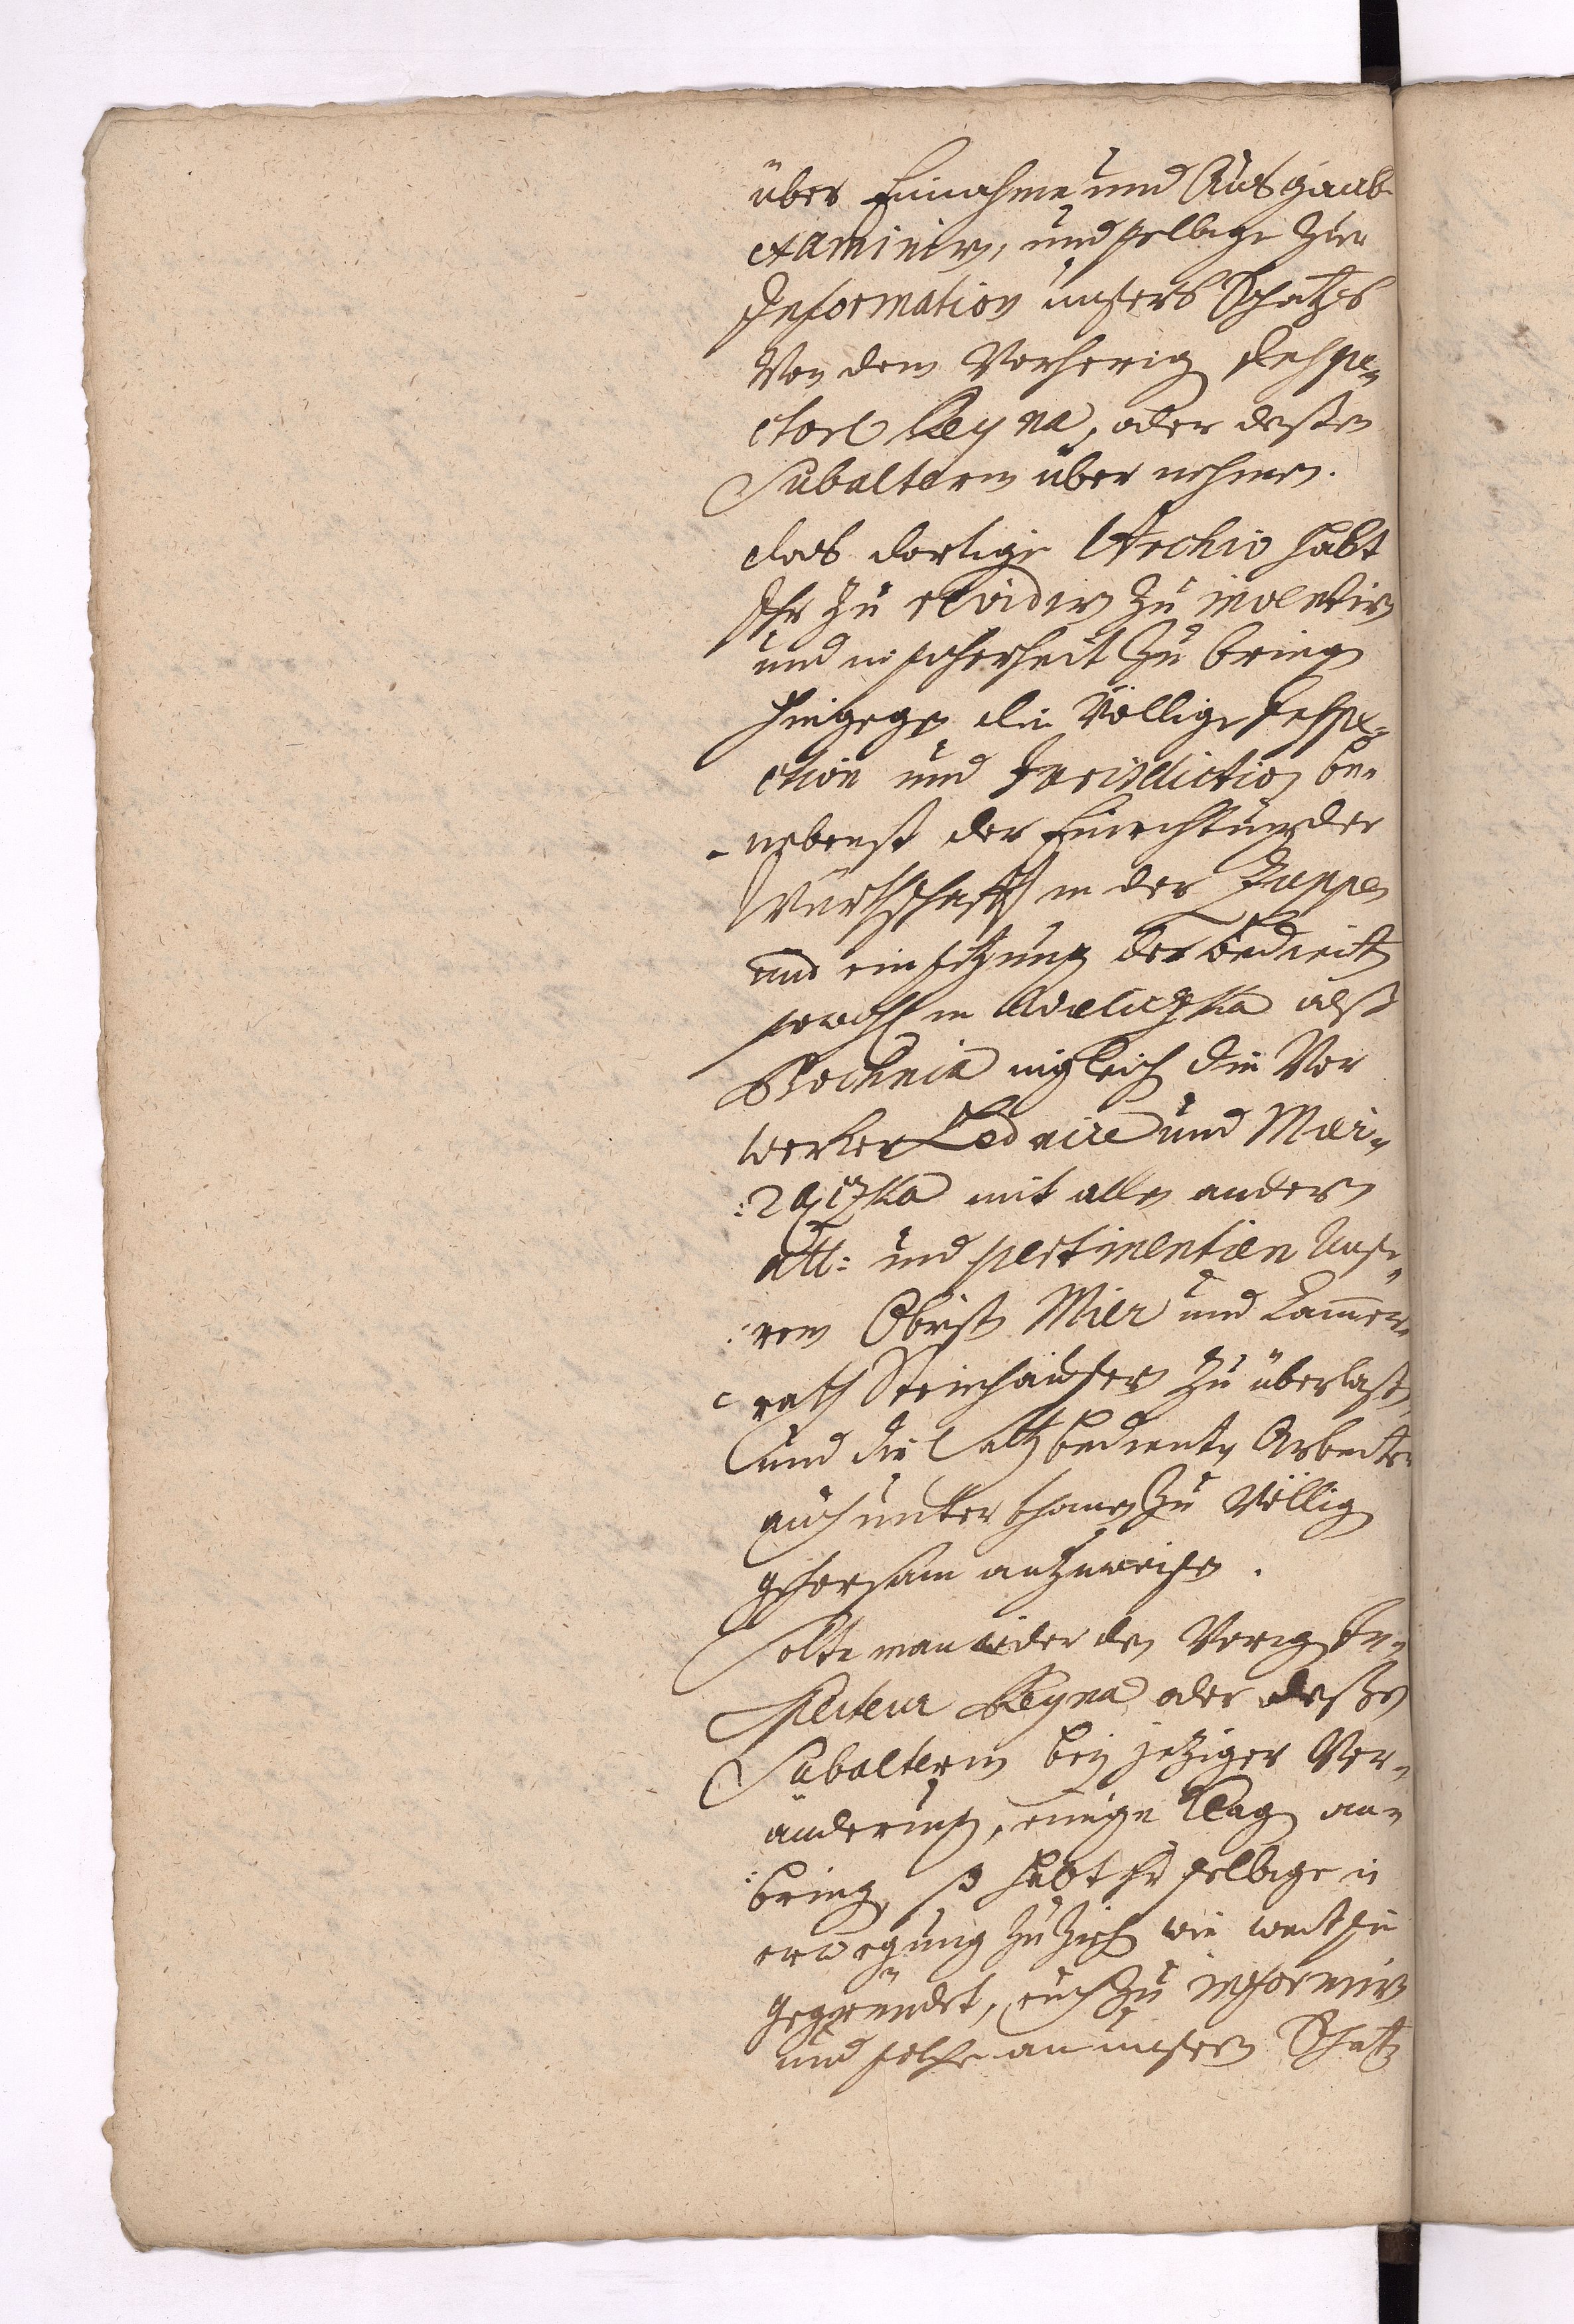 über Einnahme und Ausgaab
examinirn, und selbige zur
Information unsers Schatzes
Von dem Vorherig Inspe„
ctore Reyna, oder deßen
Subaltern über nehmen.
das dortige Archiv habt
Ihr zu revidirn zu inventirn
und in sicherheit zu bringn
hingegen die Völlige Inspe„
ction und Jurisdiction be„
nebenst der Einrichtung der
Würthschafft in der Zuppen
und einsetzung der bedientn
sowohl in Wieliczka alß
Bochnia ingleich die Vor
werker Lednice und Mier„
:zączka mit allen andern
att: und pertinentien Unse„
:rem Obrist Mier und Cammer„
rath Steinhäuser zu überlaßn,
und die Saltzbedientn Arbeiter
auch unterthanen zu Völlig
gehorsam anzuweisen.
Solte man wider den Vorig In„
specteur Reyna oder deßen
Subaltern beij jetziger Ver„
änderung, einige Klag an„
:bring, so habt ihr selbige in
erwegung zu zieh wie weit sie
gegründet, euch zu informirn
und solche an unsern Schatz